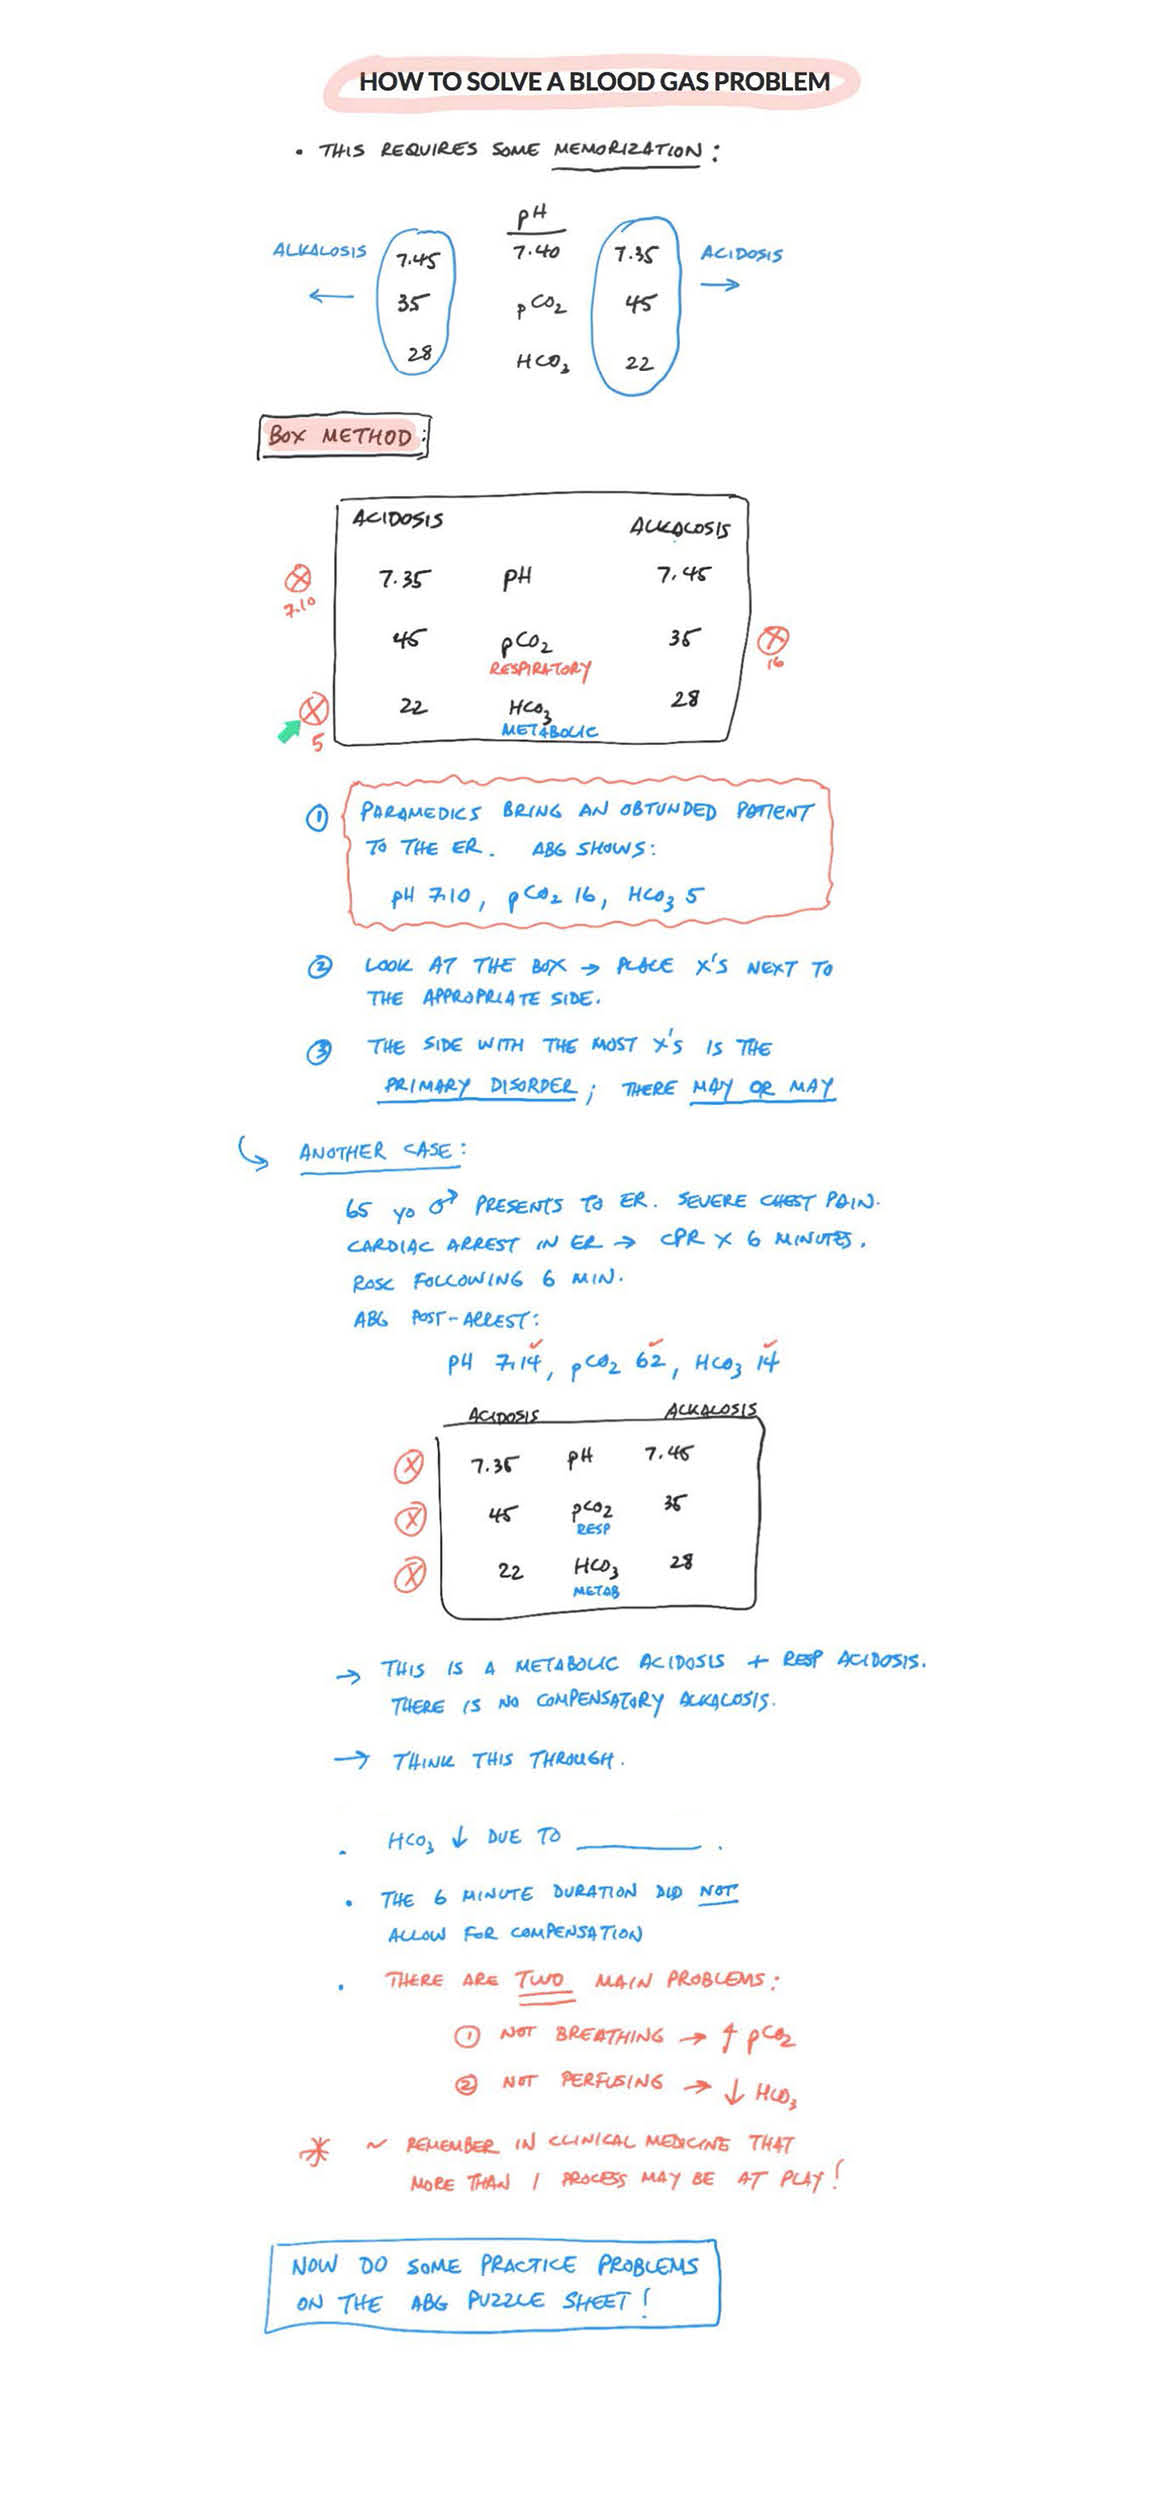 HOW TO SOLVE A BLOOD GAS PROBLEM
• THIS REQUIRES SOME MEMORIZATION:
pH
ALKALOSIS 7.45 7.40 7.35 ACIDOSIS
← 35 pCO2 45 →
28 HCO3 22
BOX METHOD:
ACIDOSIS ALKALOSIS
X 7.35 pH 7.45
7.10
45 pCO2 35 X
RESPIRATORY 16
X 22 HCO3 28
5 METABOLIC
① PARAMEDICS BRING AN OBTUNDED PATIENT
TO THE ER. ABG SHOWS:
pH 7.10, pCO2 16, HCO3 5
② LOOK AT THE BOX → PLACE X'S NEXT TO
THE APPROPRIATE SIDE.
③ THE SIDE WITH THE MOST X'S IS THE
PRIMARY DISORDER; THERE MAY OR MAY
ANOTHER CASE:
65 yo ♂ PRESENTS TO ER. SEVERE CHEST PAIN.
CARDIAC ARREST IN ER → CPR X 6 MINUTES.
ROSC FOLLOWING 6 MIN.
ABG POST-ARREST:
pH 7.14, pCO2 62, HCO3 14
ACIDOSIS ALKALOSIS
X 7.35 pH 7.45
X 45 pCO2 35
RESP
X 22 HCO3 28
METAB
→ THIS IS A METABOLIC ACIDOSIS + RESP ACIDOSIS.
THERE IS NO COMPENSATORY ALKALOSIS.
→ THINK THIS THROUGH.
• HCO3 ↓ DUE TO ________.
• THE 6 MINUTE DURATION DID NOT
ALLOW FOR COMPENSATION
• THERE ARE TWO MAIN PROBLEMS:
① NOT BREATHING → ↑ pCO2
② NOT PERFUSING → ↓ HCO3
* ~ REMEMBER IN CLINICAL MEDICINE THAT
MORE THAN 1 PROCESS MAY BE AT PLAY!
NOW DO SOME PRACTICE PROBLEMS
ON THE ABG PUZZLE SHEET!